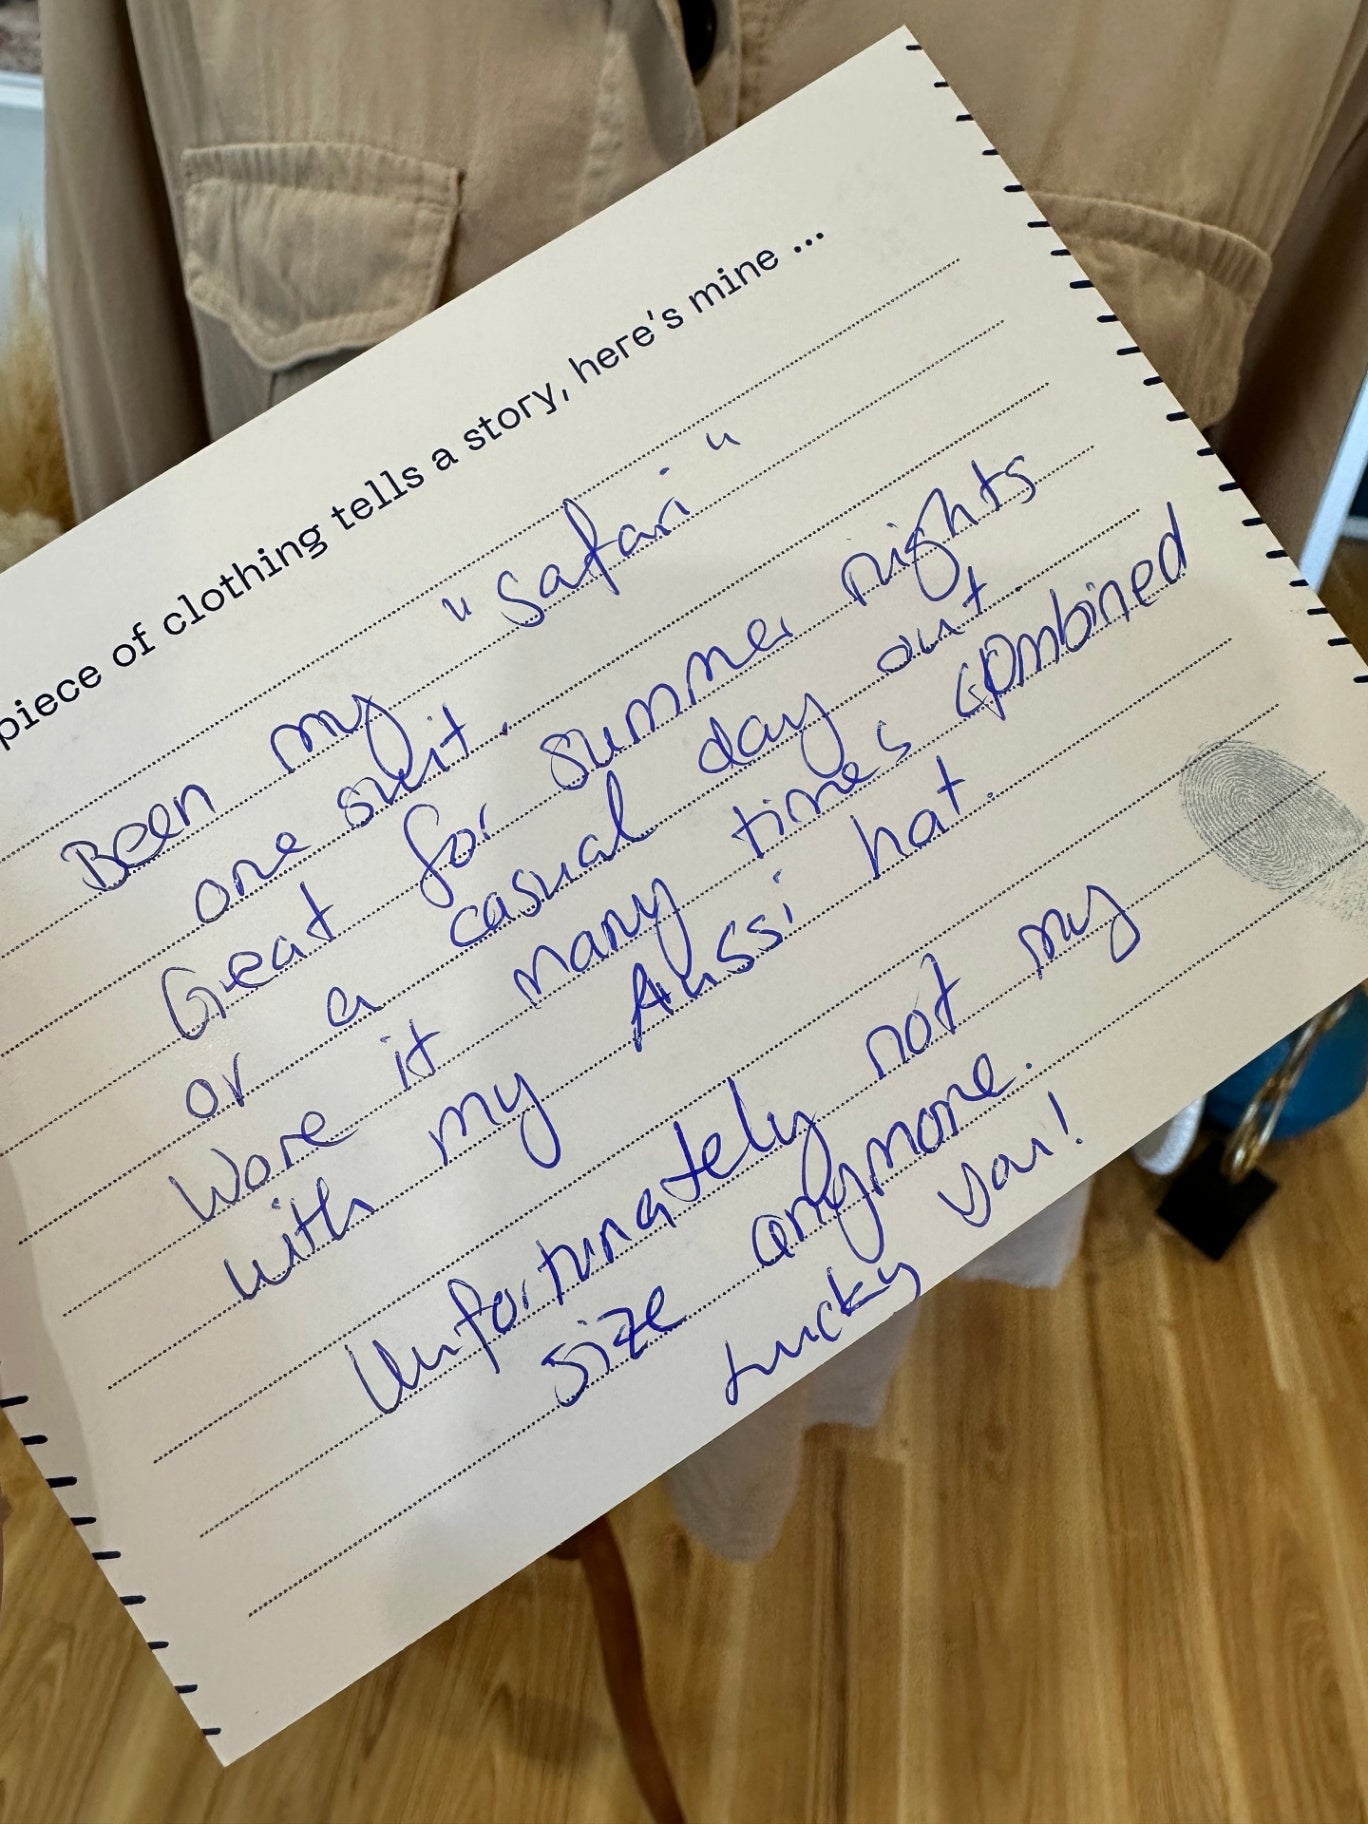 piece of clothing tells a story, here's mine ...
Been my "Safari"
one suit.
Great for summer nights
or a casual day out.
Wore it many times combined
with my Aussi hat.
Unfortunately not my
size anymore.
Lucky you!